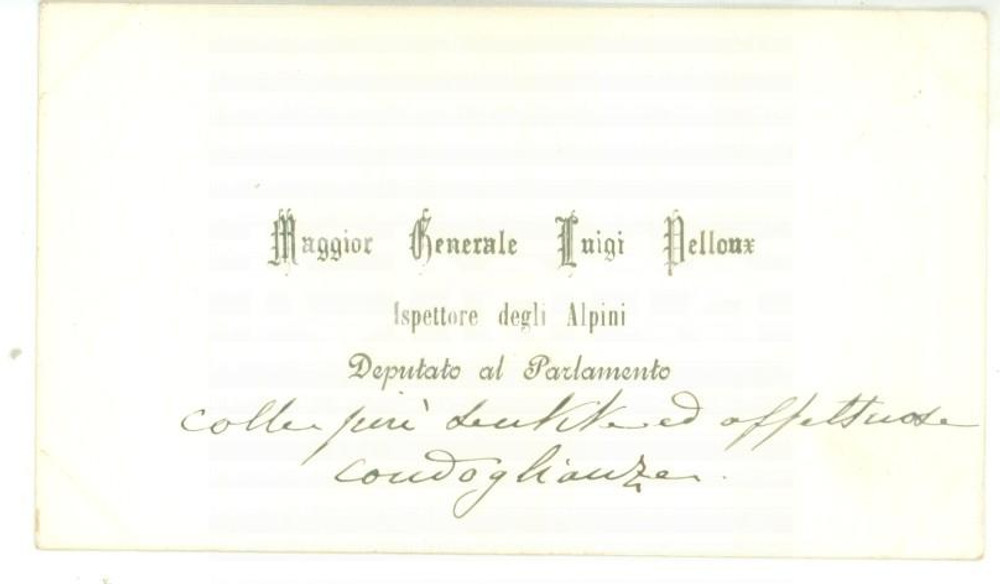 Maggior Generale Luigi Pelloux
Ispettore degli Alpini
Deputato al Parlamento
colle più sentite ed affettuose
condoglianze.